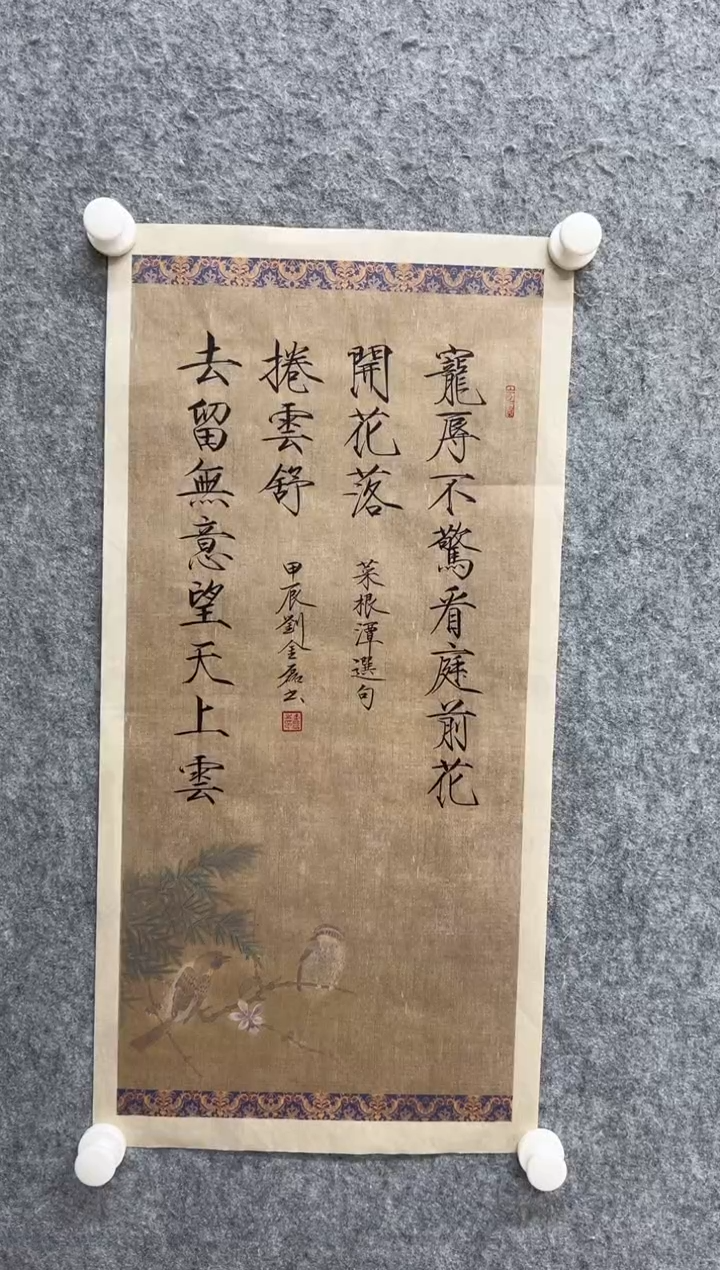 寵辱不驚看庭前花
開花落
去留無意望天上雲
捲雲舒
菜根潭選句
甲辰劉金磊书